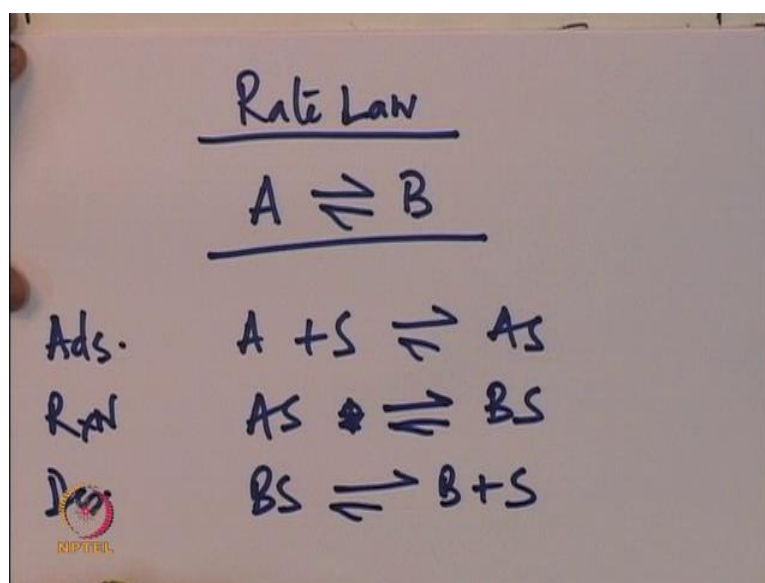 Rate Law
A ⇌ B
Ads. A + S ⇌ AS
RXN AS ⇌ BS
Des. BS ⇌ B + S
NPTEL